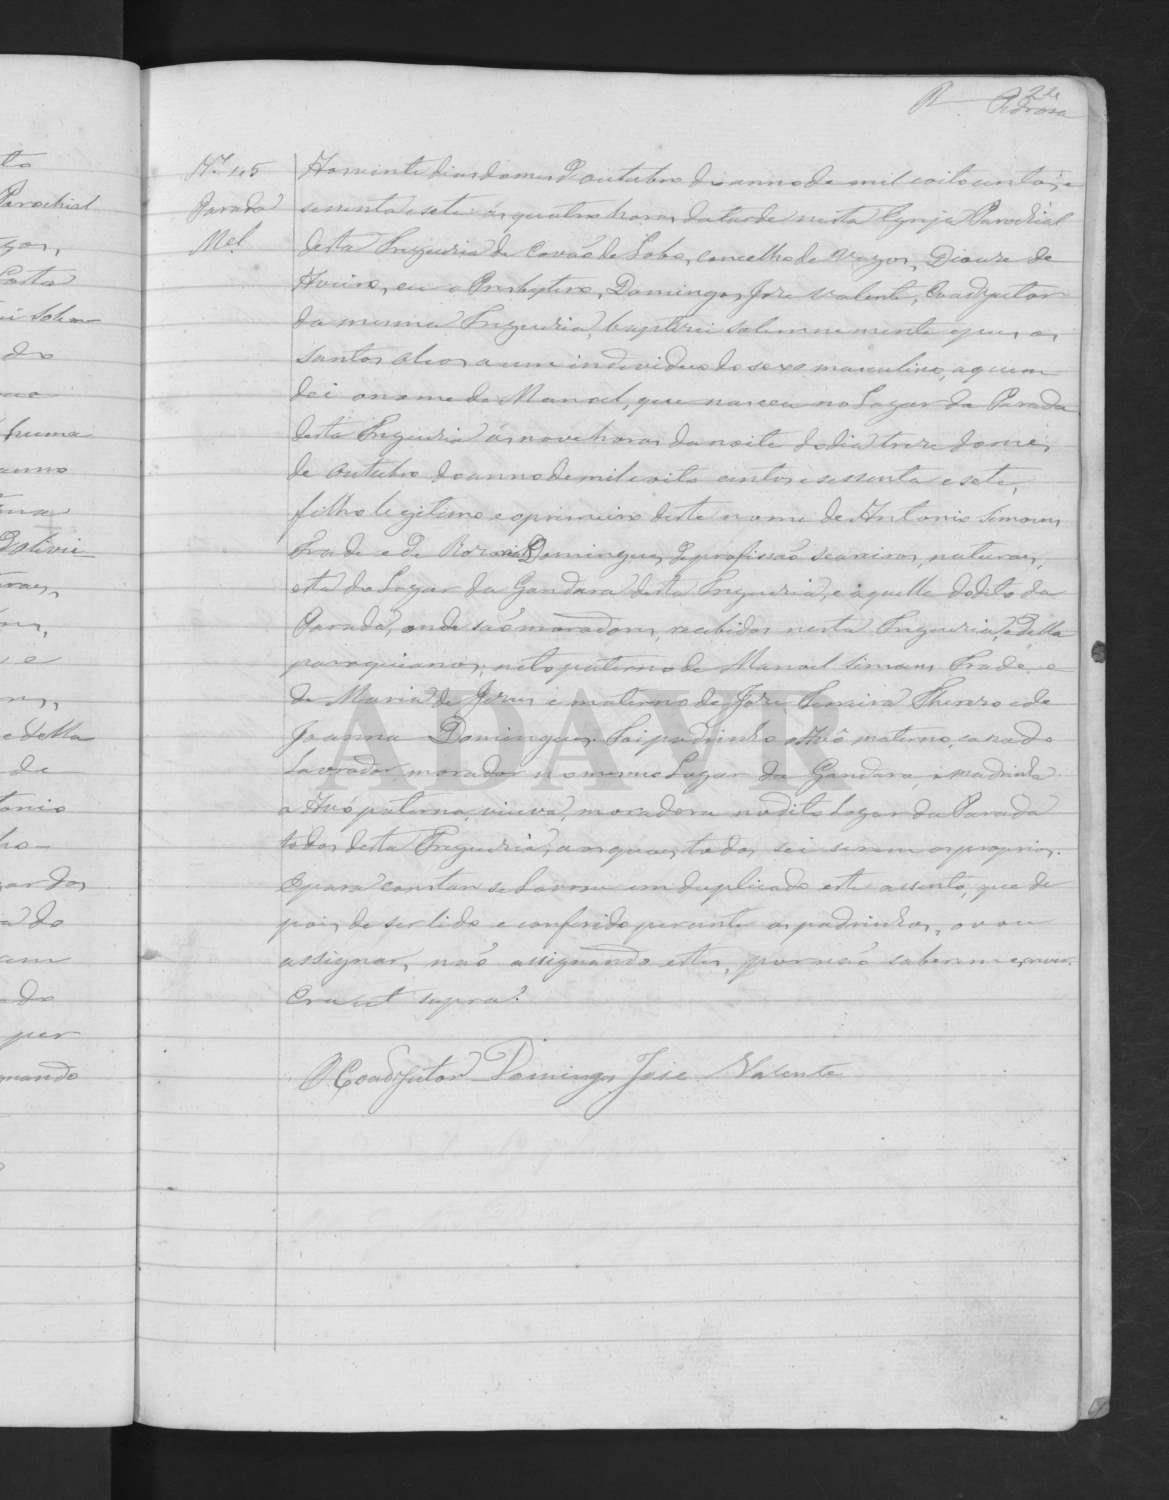 R 24
Pedrosa
Nº 45
Parada
Mel
Aos vinte dias do mes de outubro do anno de mil e oito centos, e
sessenta e sete ás quatro horas da tarde nesta Egreja Parochial
desta Freguezia de Covão de Lobo, concelho de Vagos, Diocese de
Aveiro, eu o Presbytero, Domingos Jose Valente, Coadjutor
da mesma Freguezia, baptizei solemnemente e puz os
santos oleos a um individuo do sexo masculino, a quem
dei o nome de Manoel, que nasceu no Lugar da Parada
desta Freguezia ás nove horas da noite do dia treze do mes
de outubro do anno de mil e oito centos e sessenta e sete,
filho legitimo e o primeiro deste nome de Antonio Simoens
Frade e de Domingues, de profissão seareiros, naturaes,
esta do Lugar da Gandara desta Freguezia, e aquelle do dito da
Parada, onde são moradores, recebidos nesta Freguezia, e della
paroquianos; neto paterno de Manoel Simoens Frade e
de Maria de Jesus e materno de Jose Ferreira e de
Joanna Domingues. Foi padrinho o Avô materno, casado
Lavrador, morador no mesmo Lugar da Gandara, e madrinha
a Avó paterna, viuva, moradora no dito Lugar da Parada
todos desta Freguezia, os quaes todos sei serem os proprios.
E para constar se lavrou em duplicado este assento, que de
pois de ser lido e conferido perante os padrinhos, o vou
assignar, não assignando estes, por não saberem escrever.
Era ut supra.
O Coadjutor Domingos Jose Valente
ADAVR
to
Parochial
Costa
do
huma
anno
e
e della
de
tonio
ho-
do
do
per
nando